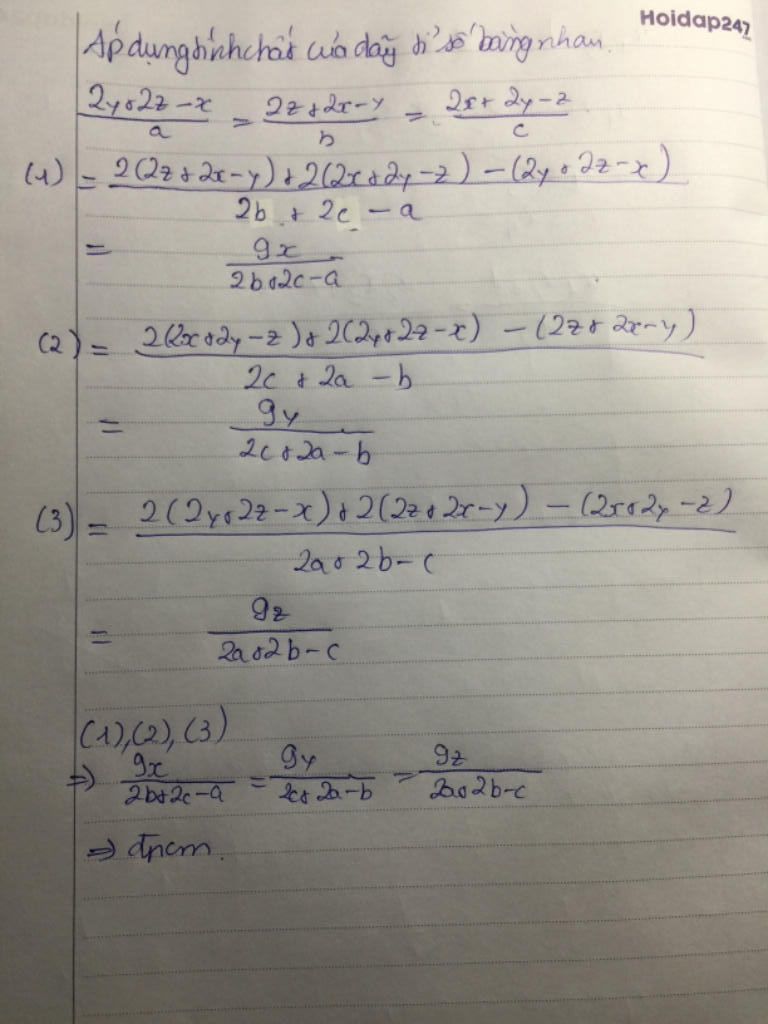 Hoidap247
Áp dụng tính chất của dãy tỉ số bằng nhau.
(2y+2z-x)/a = (2z+2x-y)/b = (2x+2y-z)/c
(1) = (2(2z+2x-y)+2(2x+2y-z)-(2y+2z-x))/(2b+2c-a)
= 9x/(2b+2c-a)
(2) = (2(2x+2y-z)+2(2y+2z-x)-(2z+2x-y))/(2c+2a-b)
= 9y/(2c+2a-b)
(3) = (2(2y+2z-x)+2(2z+2x-y)-(2x+2y-z))/(2a+2b-c)
= 9z/(2a+2b-c)
(1),(2),(3)
⇒ 9x/(2b+2c-a) = 9y/(2c+2a-b) = 9z/(2a+2b-c)
⇒ đpcm.